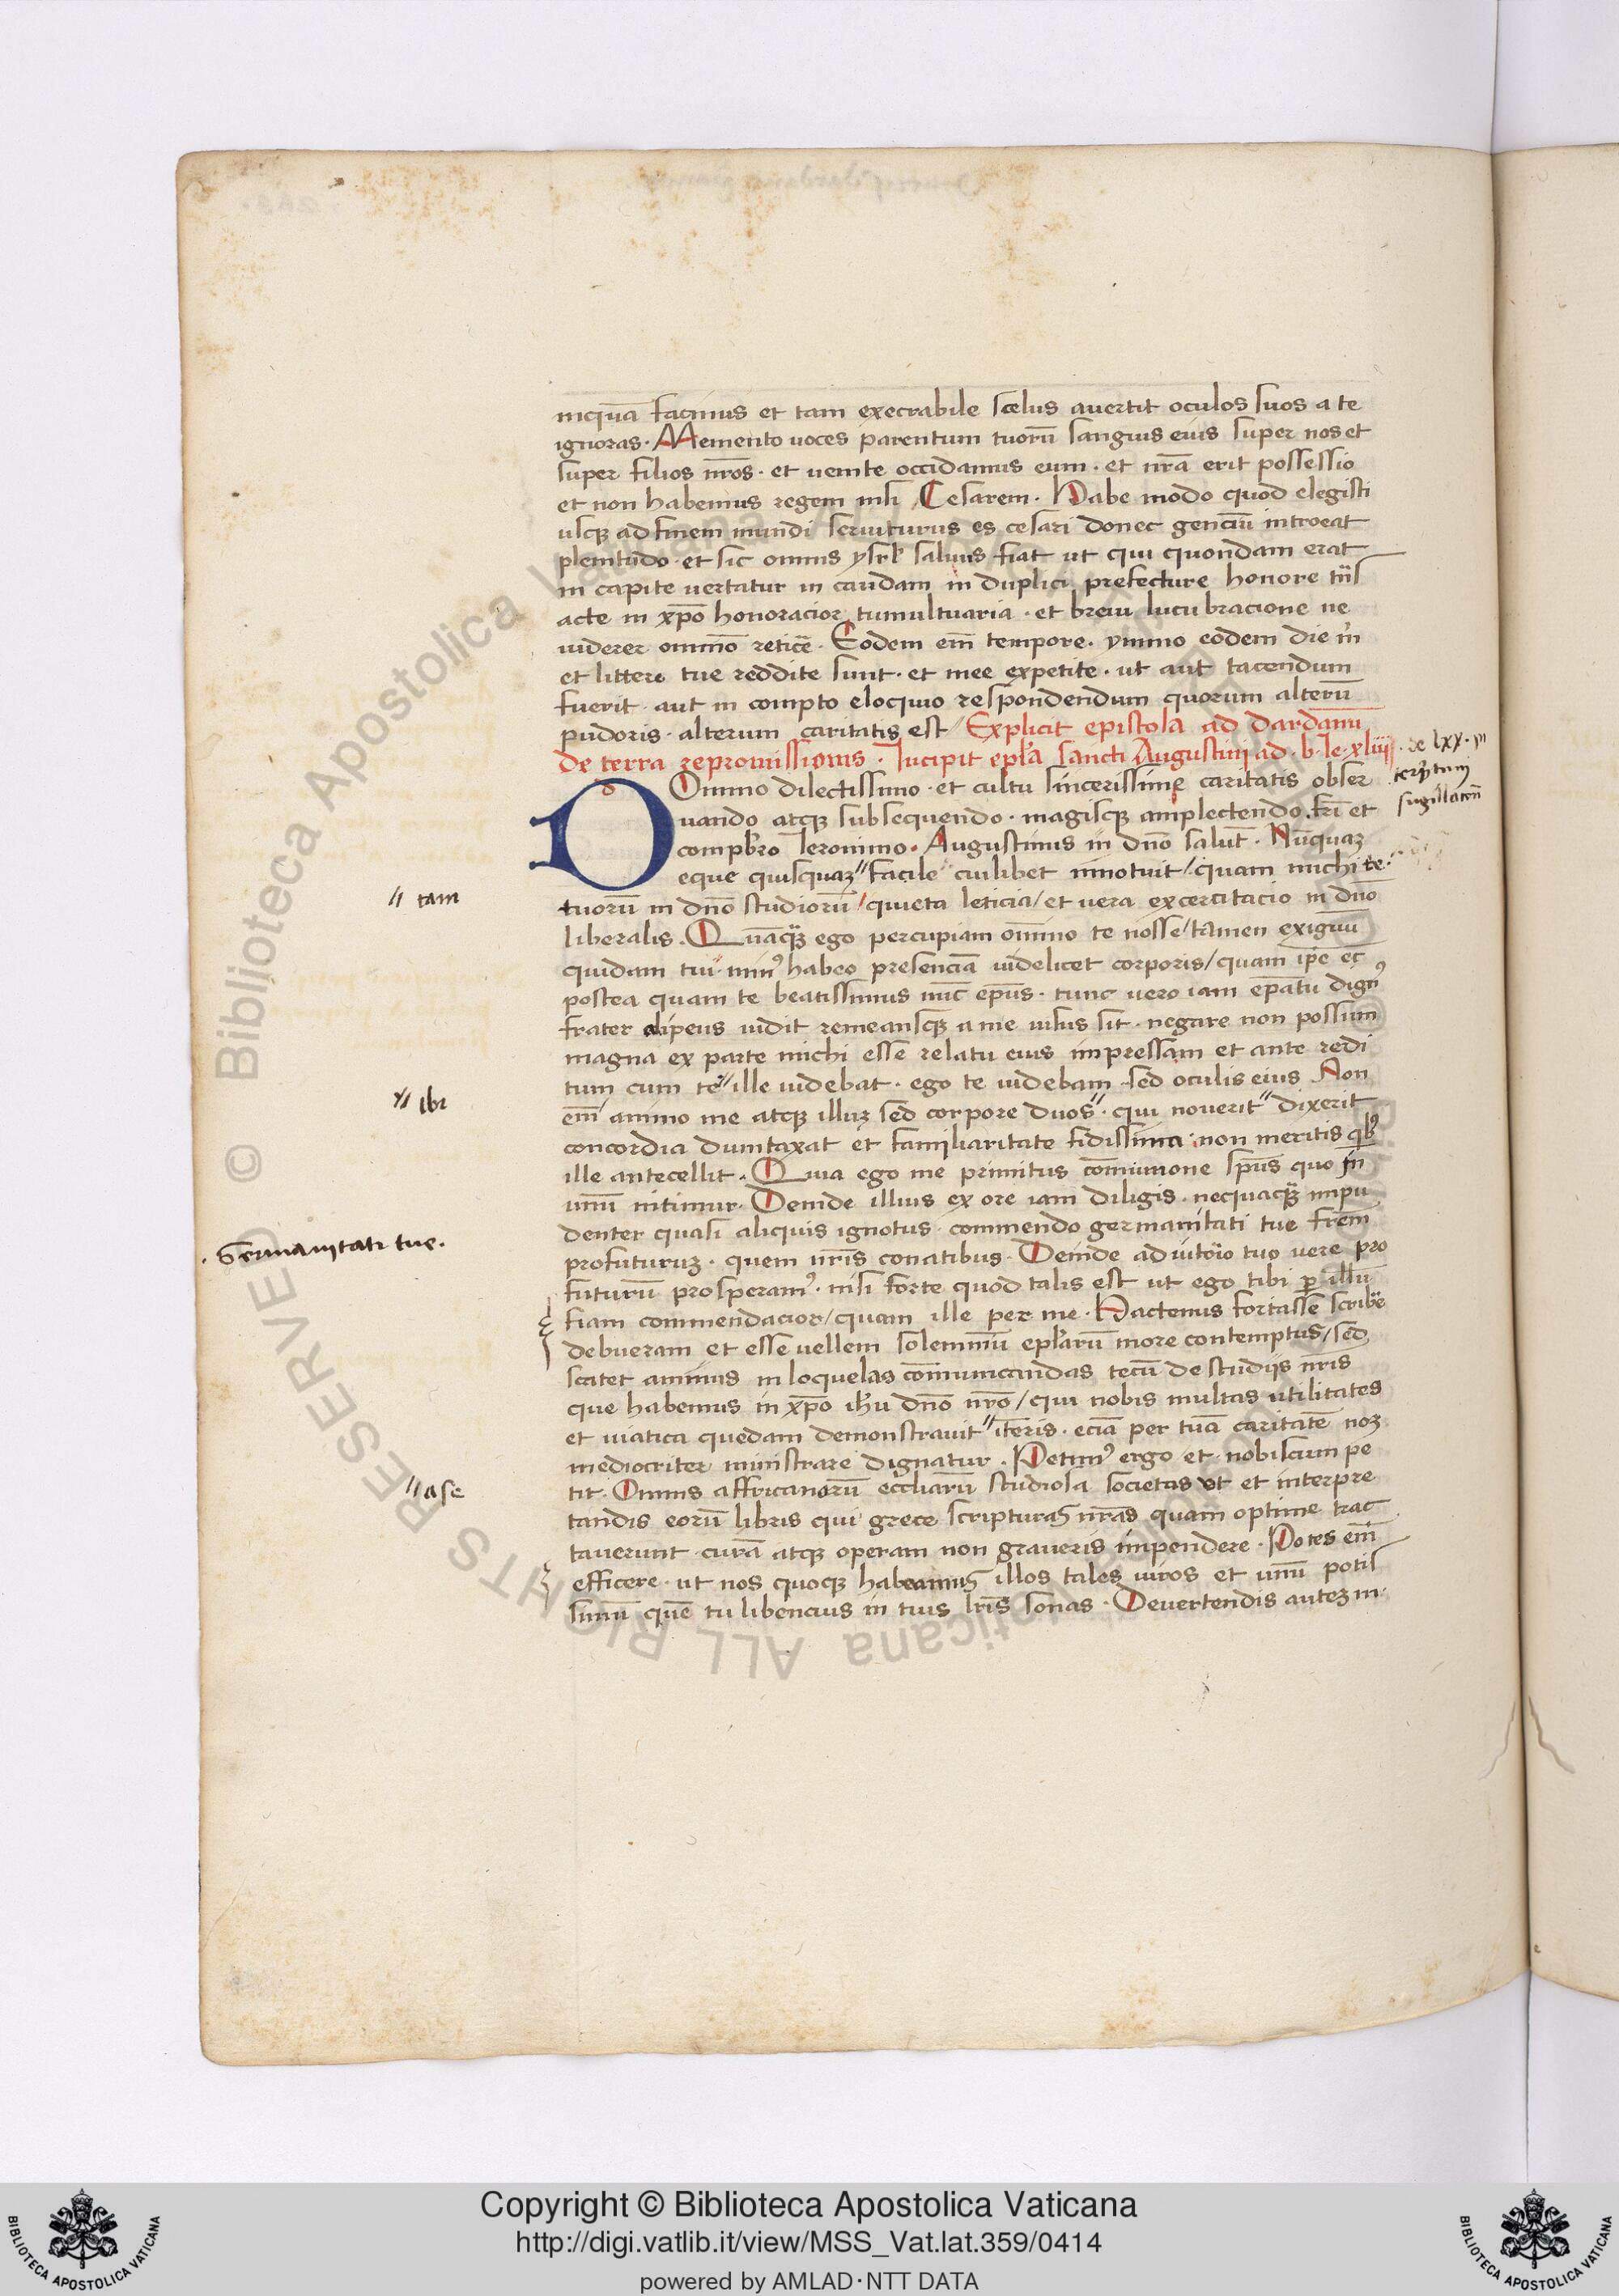 inquā facinus et tam execrabile scelus avertit oculos suos a te
ignoras · Memento uoces parentum tuorū sanguis eius super nos et
super filios nr̄os · et uenite occidamus eum · et nr̄a erit possessio
et non habemus regem nisi Cesarem · Habe modo quod elegisti
usq ad finem mundi seruiturus es cesari donec genciū introeat
plenitudo · et sic omnis ysrl saluus fiat ut qui quondam erat
in capite uertatur in caudam in duplici prefecture honore trās
acte in xp̄o honoracior tumultuaria · et breui lucubracione ne
uiderer omnīo reticē · Eodem em̄ tempore · ymmo eodem die m̄
et littere tue reddite sunt · et mee expetite · ut aut tacendum
fuerit · aut in compto eloquio respondendum quorum alterū
pudoris · alterum caritatis est / Explicit epistola ad dardanū
de terra repromissionis · Incipit epl̄a sancti Augustini ad · b · Ie · xliii
· de lxx · in
terp̄tum
sugillacōn
DOmino dilectissimo · et cultu sincerissime caritatis obser
uando atq subsequendo · magisq amplectendo frī et
compbr̄o Ieronimo · Augustinus in dn̄o salut̄ · Nūquaz
eque quisquaz " facile cuilibet innotuit / quam michi te ·
" tam
tuorū in dn̄o studiorū / quieta leticia / et uera excercitacio in dn̄o
liberalis · Quāq ego percupiam omīno te nosse / tamen exiguū
quidam tui · min9 habeo presenciā uidelicet corporis / quam ip̄e ec̄
postea quam te beatissimus nūc ep̄us · tunc uero iam ep̄atu dign9
frater alipeus uidit remeansq a me uisus sit · negare non possum
magna ex parte michi esse relatu eius impressam et ante redi
tum cum te " ille uidebat · ego te uidebam · sed oculis eius Non
" ibi
em̄ animo me atq illuz sed corpore duos " · qui nouerit " dixerit
concordia dumtaxat et familiaritate fidissima · non meritis qb9
ille antecellit · Quia ego me primitus cōmunione sp̄us quo in
unū nitimur · Deinde illius ex ore iam diligis · nequaq impu
denter quasi aliquis ignotus · commendo germanitati tue frem̄
· Germanitati tue ·
profuturuz · quem nr̄is conatibus · Deinde adiutōio tuo uere pro
futurū prosperam9 · nisi forte quod talis est ut ego tibi p illū
fiam commendacior / quam ille per me · Hactenus fortasse scribē
debueram et esse uellem solemniū epl̄arū more contemptus / sed
scatet animus in loquelas cōmunicandas tecū de studiis nr̄is
que habemus in xp̄o ihu dn̄o nr̄o / qui nobis multas utilitates
et uiatica quedam demonstrauit " itīeris · eciā per tuā caritatē noz
mediocriter ministrare dignatur · Petim9 ergo et nobiscum pe
tit · Omnis affricanorū eccl̄iarū studiosa societas ut et interpre
" a se
tandis eorū libris qui grece scripturas nr̄as quam optime trac
tauerunt · curā atq operam non graueris impendere · Potes em̄
efficere · ut nos quoq habeamus illos tales uiros et unū potis
simū quē tu libencius in tuis lr̄is sonas · Deuertendis autez in ·
© Biblioteca Apostolica Vaticana
ALL RIGHTS RESERVED
Copyright © Biblioteca Apostolica Vaticana
http://digi.vatlib.it/view/MSS_Vat.lat.359/0414
powered by AMLAD·NTT DATA
BIBLIOTECA APOSTOLICA VATICANA
BIBLIOTECA APOSTOLICA VATICANA